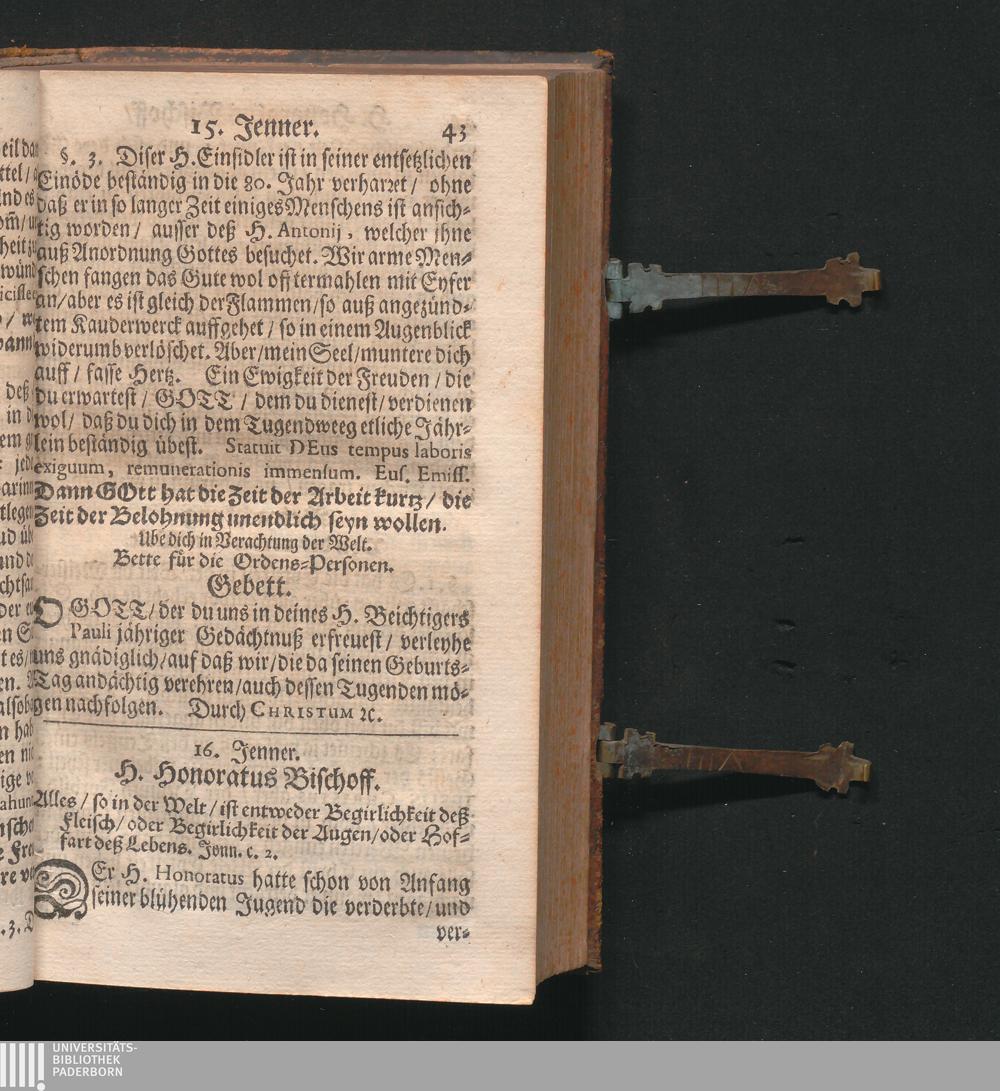 15. Jenner. 43
§. 3. Diser H. Einsidler ist in seiner entsetzlichen
Einöde beständig in die 80. Jahr verharret / ohne
daß er in so langer Zeit einiges Menschens ist ansich-
tig worden / ausser deß H. Antonij, welcher jhne
auß Anordnung Gottes besuchet. Wir arme Men-
schen fangen das Gute wol offtermahlen mit Eyfer
an / aber es ist gleich der Flammen / so auß angezünd-
tem Kauderwerck auffgehet / so in einem Augenblick
widerumb verlöschet. Aber / mein Seel / muntere dich
auff / fasse Hertz. Ein Ewigkeit der Freuden / die
du erwartest / GOTT / dem du dienest / verdienen
wol / daß du dich in dem Tugendweeg etliche Jähr-
lein beständig übest. Statuit DEus tempus laboris
exiguum, remunerationis immensum. Eus. Emiss.
Dann GOtt hat die Zeit der Arbeit kurtz / die
Zeit der Belohnung unendlich seyn wollen.
Ube dich in Verachtung der Welt.
Bette für die Ordens-Personen.
Gebett.
O GOTT / der du uns in deines H. Beichtigers
Pauli jähriger Gedächtnuß erfreuest / verleyhe
uns gnädiglich / auf daß wir / die da seinen Geburts-
Tag andächtig verehren / auch dessen Tugenden mö-
gen nachfolgen. Durch CHRISTUM ꝛc.
16. Jenner.
H. Honoratus Bischoff.
Alles / so in der Welt / ist entweder Begirlichkeit deß
Fleisch / oder Begirlichkeit der Augen / oder Hof-
fart deß Lebens. Joan. c. 2.
DEr H. Honoratus hatte schon von Anfang
seiner blühenden Jugend die verderbte / und
ver-
UNIVERSITÄTS-
BIBLIOTHEK
PADERBORN